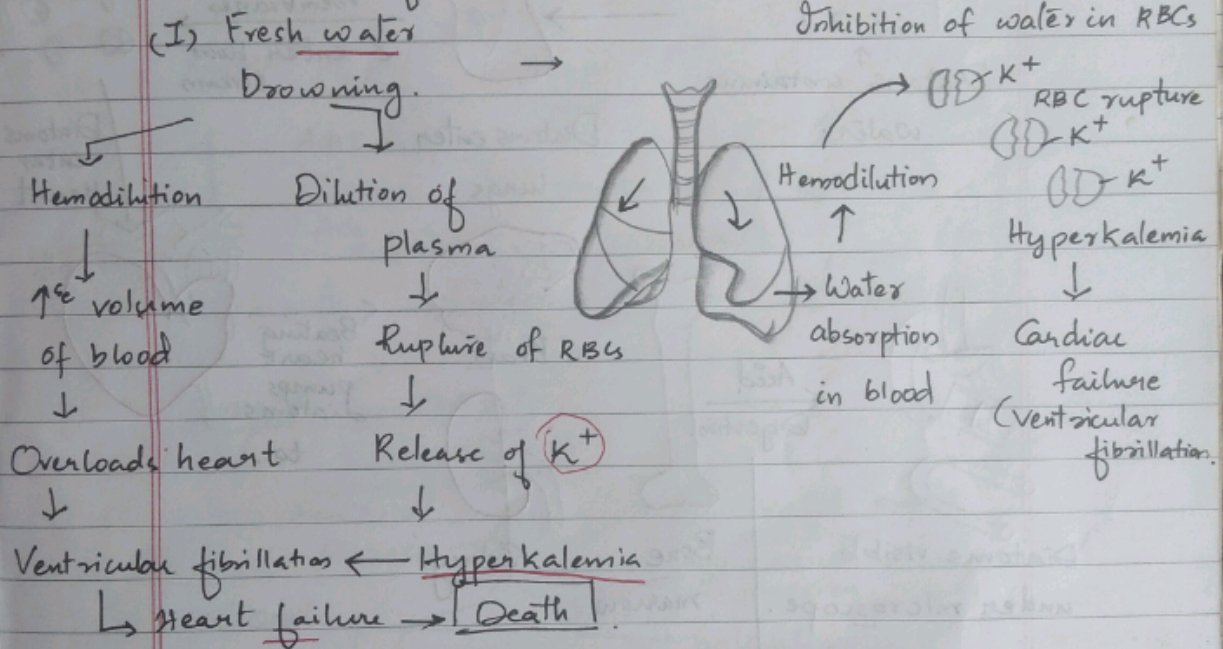 (I) Fresh water
Drowning.
Hemodilution
↑se volume
of blood
Overloads heart
Ventricular fibrillation ← Hyperkalemia
Heart failure → Death
Dilution of
plasma
Rupture of RBCs
Release of K+
Hemodilution
Water
absorption
in blood
Inhibition of water in RBCs
K+
RBC rupture
K+
K+
Hyperkalemia
Cardiac
failure
(Ventricular
fibrillation.